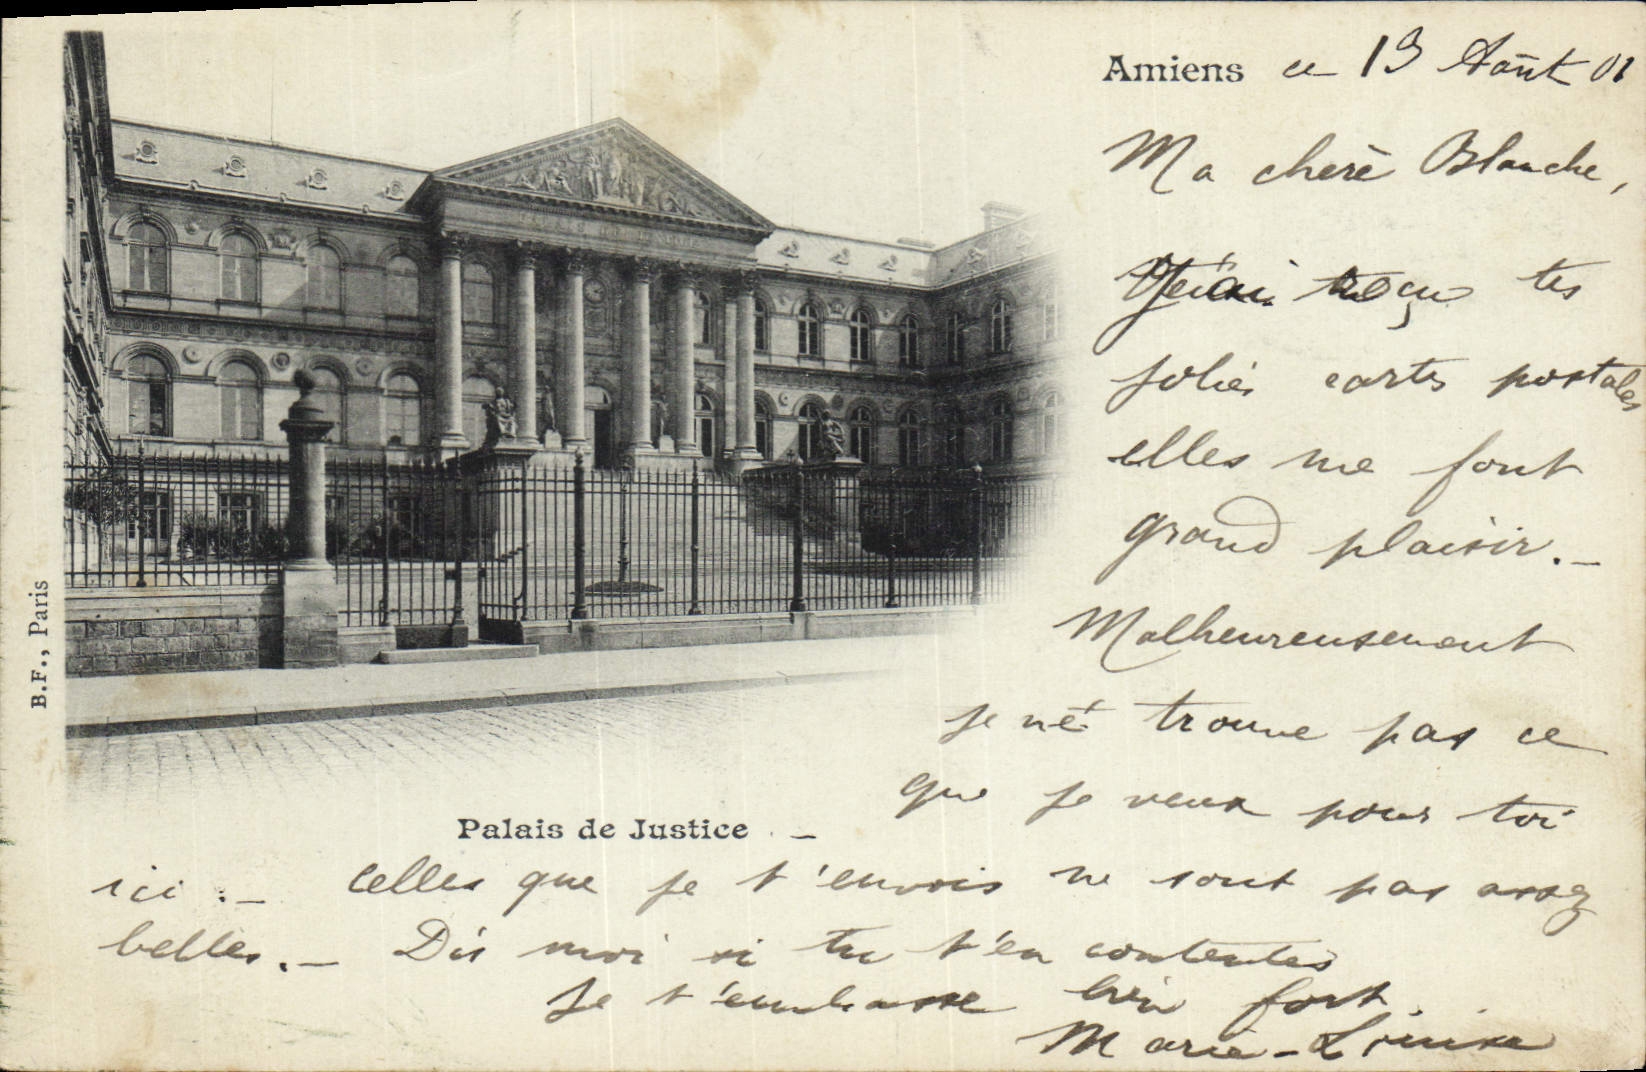 Amiens ce 13 Août 01
Ma cherè Blanche,
J'ai reçu tes
joliés cartes postales
elles me font
grand plaisir. –
Malheureusement
je né trouve pas ce
que je veux pour toi
Palais de Justice –
ici . – Celles que je t'envois ne sont pas assez
belles. – Dis moi si tu t'en contentes
Je t'embrasse bien fort
Marie-Louise
B.F., Paris